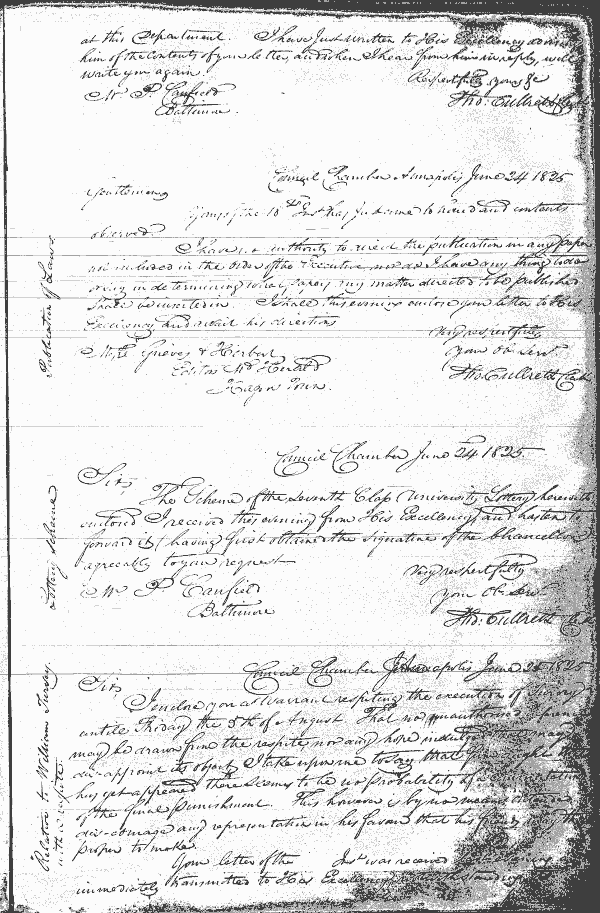 at this Department. I have just written to His Excellency advising
him of the contents of your letter, and when I hear from him in reply, will
write you again.
Respectfully yours &c
Mr P. Canfield
Tho: Culbreth Clk
Baltimore.
Council Chamber Annapolis June 24 1825
Gentlemen
Yours of the 18th Inst has just come to hand and contents
observed
Publication of Laws
I have no authority to direct the publication in any paper
not included in the order of the Executive, nor do I have any thing to do
in determining what papers any matter directed to be published
shall be inserted in. I shall this evening enclose your letter to His
Excellency and await his directions
Very respectfully
Messrs Grieves & Herbert
your Ob. Serv.
Editors Md Herald
Tho: Culbreth Clk
Hagers Town.
Council Chamber June 24 1825.
Sir,
Lottery Scheme
The Scheme of the Seventh Class (University Lottery) herewith
enclosed I received this evening from His Excellency and hasten to
forward it (having first obtained the signature of the Chancellor
agreeably to your request
Very respectfully
Mr P. Canfield
your Ob. Serv.
Baltimore
Tho: Culbreth Clk
Council Chamber Annapolis June 24 1825
Sir
Relation to William Tursey
with a respite.
I enclose you a Warrant respiting the execution of Tursey
until Friday the 5th of August. That no unauthorised
may be drawn from the respite, nor any hope indulged may
dis-appoint its object, I take upon me to say that
has yet appeared there seems to be no probability of a
of the final punishment. This however is by no means
dis-courage any representation in his favour that his friends
proper to make.
Your letter of the Inst was received
immediately transmitted to His Excellency